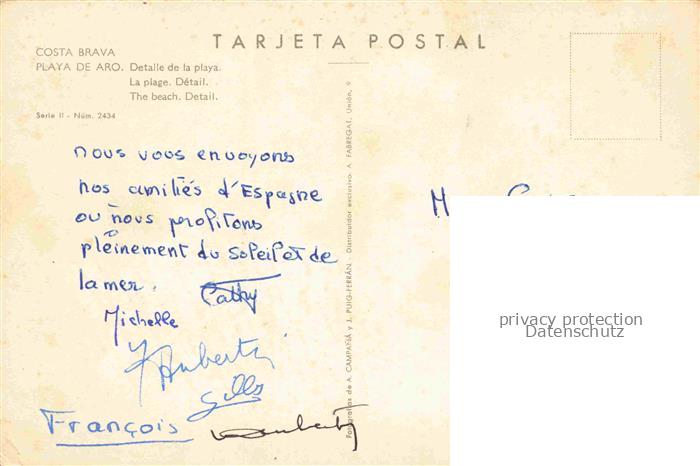 TARJETA POSTAL
COSTA BRAVA
PLAYA DE ARO. Detalle de la playa.
La plage. Détail.
The beach. Detail.
Serie II - Núm. 2434
nous vous envoyons
nos amitiés d'Espagne
où nous profitons
pleinement du soleil et de
la mer.
Cathy
Michelle
Gilles
François
Fotografías de A. CAMPAÑÁ y J. PUIG-FERRÁN - Distribuidor exclusivo: A. FABREGAT, Unión, 9
privacy protection
Datenschutz